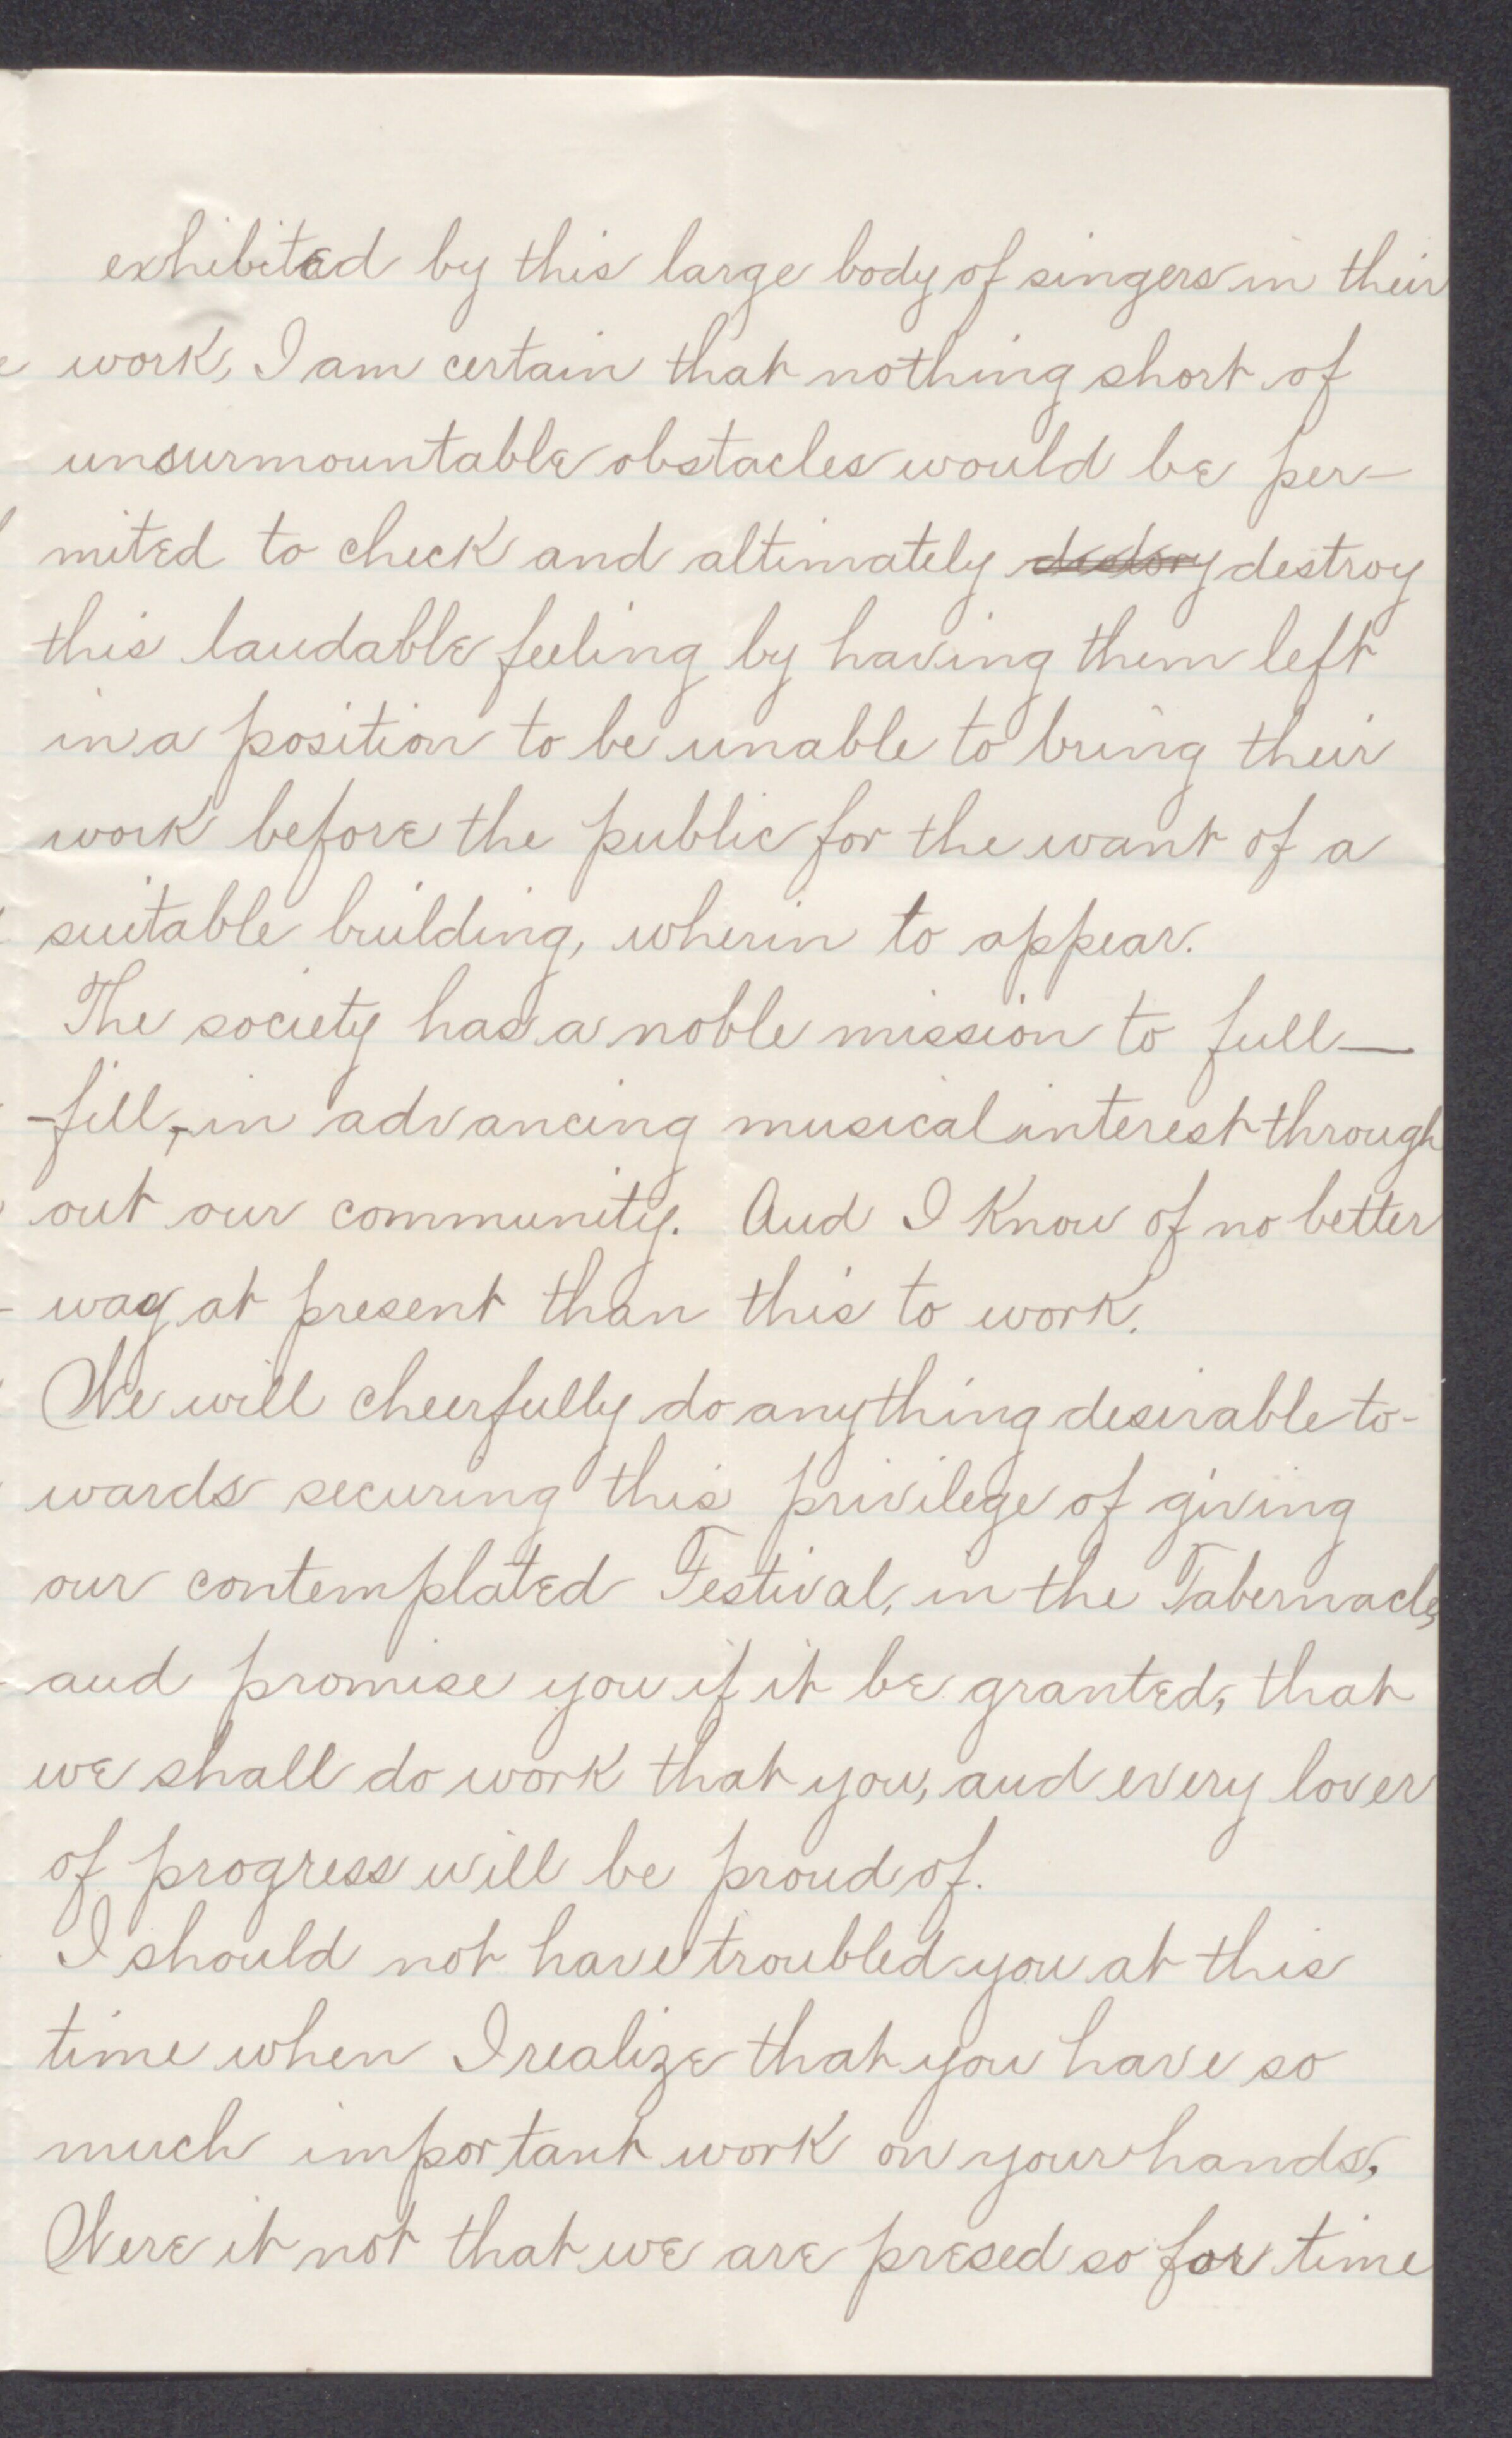 exhibited by this large body of singers in their
work, I am certain that nothing short of
unsurmountable obstacles would be per-
mited to check and altimately destory destroy
this laudable feeling by having them left
in a position to be unable to bring their
work before the public for the want of a
suitable building, wherin to appear.
The society has a noble mission to full-
-fill, in advancing musical interest through
out our community. And I know of no better
way at present than this to work.
We will cheerfully do anything desirable to-
wards securing this privilege of giving
our contemplated Festival, in the Tabernacle,
and promise you if it be granted, that
we shall do work that you, and every lover
of progress will be proud of.
I should not have troubled you at this
time when I realize that you have so
much important work on your hands,
Were it not that we are presed so for time